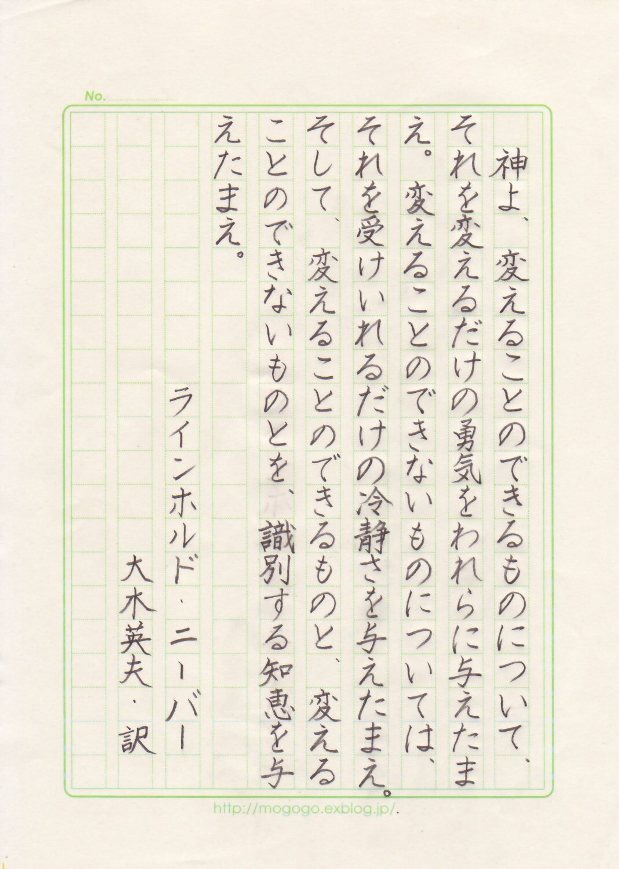 No.
神よ、変えることのできるものについて、
それを変えるだけの勇気をわれらに与えたま
え。変えることのできないものについては、
それを受けいれるだけの冷静さを与えたまえ。
そして、変えることのできるものと、変える
ことのできないものとを、識別する知恵を与
えたまえ。
ラインホルド・ニーバー
大木英夫・訳
http://mogogo.exblog.jp/